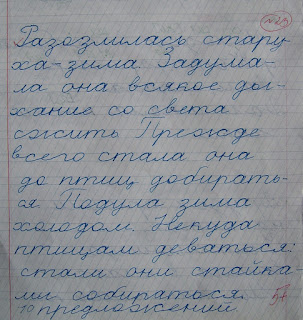 №23
Разозлилась стару
ха-зима. Задума-
ла она всякое ды-
хание со света
сжить Прежде
всего стала она
до птиц добирать-
ся Подула зима
холодом. Некуда
птицам деваться:
стали они стайка-
ми собираться
10 предложений